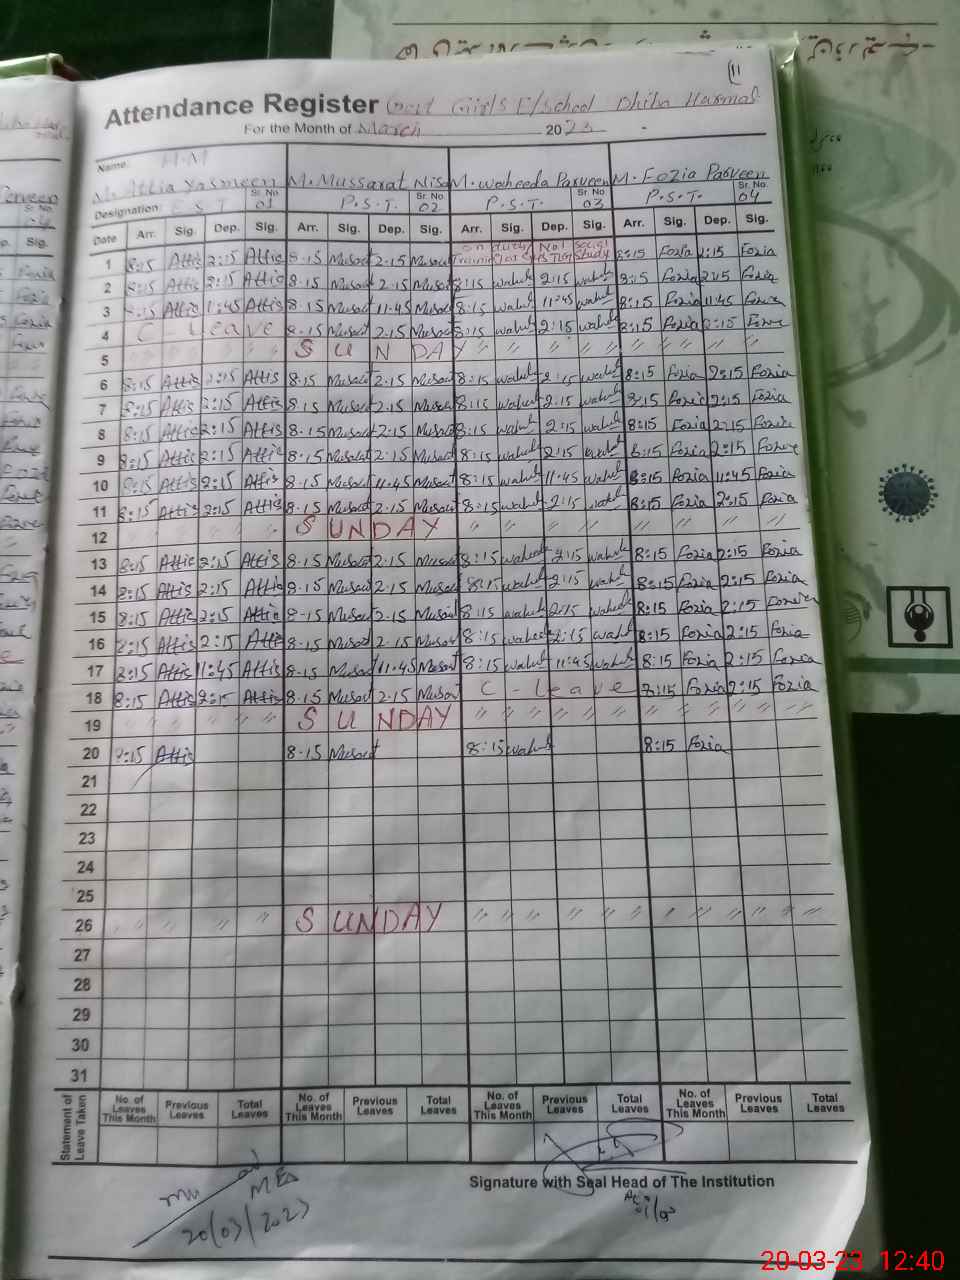 11
Attendance Register Govt Girls E/School Dhiha Harmal
For the Month of March 2023
Name: H.M
M. Attia Yasmeen M. Mussarat Nisa M. waheeda Parveen M. Fozia Parveen
Designation: E S T Sr. No. 01 P.S.T. Sr. No. 02 P.S.T. Sr. No. 03 P.S.T. Sr. No. 04
Date Arr. Sig. Dep. Sig. Arr. Sig. Dep. Sig. Arr. Sig. Dep. Sig. Arr. Sig. Dep. Sig.
1 8:15 Attis 2:15 Attis 8-15 Musaat 2-15 Musaat on duty Social Study 8:15 Fozia 2:15 Fozia
2 8:15 Attis 2:15 Attis 8-15 Musaat 2-15 Musaat 8:15 waheed 2:15 waheed 8:15 Fozia 2:15 Fozia
3 8:15 Attis 11:45 Attis 8-15 Musaat 11-45 Musaat 8:15 waheed 11:45 waheed 8:15 Fozia 11:45 Fozia
4 C - Leave 8-15 Musaat 2-15 Musaat 8:15 waheed 2:15 waheed 8:15 Fozia 2:15 Fozia
5 " " " " SUNDAY " " " " " " " "
6 8:15 Attis 2:15 Attis 8-15 Musaat 2-15 Musaat 8:15 waheed 2:15 waheed 8:15 Fozia 2:15 Fozia
7 8:15 Attis 2:15 Attis 8-15 Musaat 2-15 Musaat 8:15 waheed 2:15 waheed 8:15 Fozia 2:15 Fozia
8 8:15 Attis 2:15 Attis 8-15 Musaat 2-15 Musaat 8:15 waheed 2:15 waheed 8:15 Fozia 2:15 Fozia
9 8:15 Attis 2:15 Attis 8-15 Musaat 2-15 Musaat 8:15 waheed 2:15 waheed 8:15 Fozia 2:15 Fozia
10 8:15 Attis 2:15 Attis 8-15 Musaat 11-45 Musaat 8:15 waheed 11:45 waheed 8:15 Fozia 11:45 Fozia
11 8:15 Attis 2:15 Attis 8-15 Musaat 2-15 Musaat 8:15 waheed 2:15 waheed 8:15 Fozia 2:15 Fozia
12 SUNDAY " " " " " " " "
13 8:15 Attis 2:15 Attis 8-15 Musaat 2-15 Musaat 8:15 waheed 2:15 waheed 8:15 Fozia 2:15 Fozia
14 8:15 Attis 2:15 Attis 8-15 Musaat 2-15 Musaat 8:15 waheed 2:15 waheed 8:15 Fozia 2:15 Fozia
15 8:15 Attis 2:15 Attis 8-15 Musaat 2-15 Musaat 8:15 waheed 2:15 waheed 8:15 Fozia 2:15 Fozia
16 8:15 Attis 2:15 Attis 8-15 Musaat 2-15 Musaat 8:15 waheed 2:15 waheed 8:15 Fozia 2:15 Fozia
17 8:15 Attis 11:45 Attis 8-15 Musaat 11-45 Musaat 8:15 waheed 11:45 waheed 8:15 Fozia 2:15 Fozia
18 8:15 Attis 2:15 Attis 8-15 Musaat 2-15 Musaat C - Leave 8:15 Fozia 2:15 Fozia
19 " " " " SUNDAY " " " " " " " "
20 8:15 Attis 8-15 Musaat 8:15 waheed 8:15 Fozia
21
22
23
24
25
26 " " " " SUNDAY " " " " " " " "
27
28
29
30
31
Statement of Leave Taken No. of Leaves This Month Previous Leaves Total Leaves No. of Leaves This Month Previous Leaves Total Leaves No. of Leaves This Month Previous Leaves Total Leaves No. of Leaves This Month Previous Leaves Total Leaves
Signature with Seal Head of The Institution
MEA
20/03/2023
20-03-23 12:40